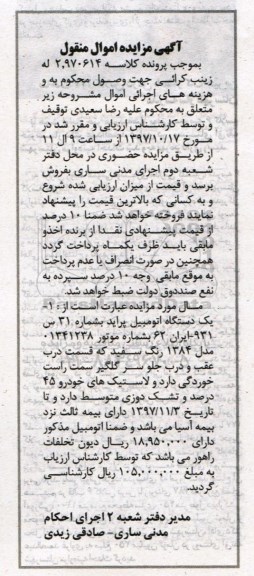 آگهی مزایده اموال منقول
بموجب پرونده کلاسه ۲,۹۷۰۶۱۴ له
زینب کرائی جهت وصول محکوم به و
هزینه های اجرائی اموال مشروحه زیر
متعلق به محکوم علیه رضا سعیدی توقیف
و توسط کارشناس ارزیابی و مقرر شد در
مورخ ۱۳۹۷/۱۰/۱۷ از ساعت ۹ ال ۱۱
از طریق مزایده حضوری در محل دفتر
شعبه دوم اجرای مدنی ساری بفروش
برسد و قیمت از میزان ارزیابی شده شروع
و به کسانی که بالاترین قیمت را پیشنهاد
نمایند فروخته خواهد شد ضمنا ۱۰ درصد
از قیمت پیشنهادی نقدا از برنده اخذو
مابقی باید ظرف یکماه پرداخت گردد
همچنین در صورت انصراف یا عدم پرداخت
به موقع مابقی وجه ۱۰ درصد سپرده به
نفع صنددوق دولت ضبط خواهد شد.
مال مورد مزایده عبارت است از : ۱-
یک دستگاه اتومبیل پراید بشماره ۳۱ س
۹۳۱-ایران ۶۲ بشماره موتور ۰۱۳۴۱۲۳۸
مدل ۱۳۸۴ رنگ سفید که قسمت درب
عقب و درب جلو سر گلگیر سمت راست
خوردگی دارد و لاستیک های خودرو ۴۵
درصد و تشک دوزی متوسط دارد و تا
تاریخ ۱۳۹۷/۱۱/۳ دارای بیمه ثالث نزد
بیمه آسیا می باشد و ضمنا اتومبیل مذکور
دارای ۱۸,۹۵۰,۰۰۰ ریال دیون تخلفات
راهور می باشد که توسط کارشناس ارزیاب
به مبلغ ۱۰۵,۰۰۰,۰۰۰ ریال کارشناسی
گردید.
مدیر دفتر شعبه ۲ اجرای احکام
مدنی ساری- صادقی زیدی